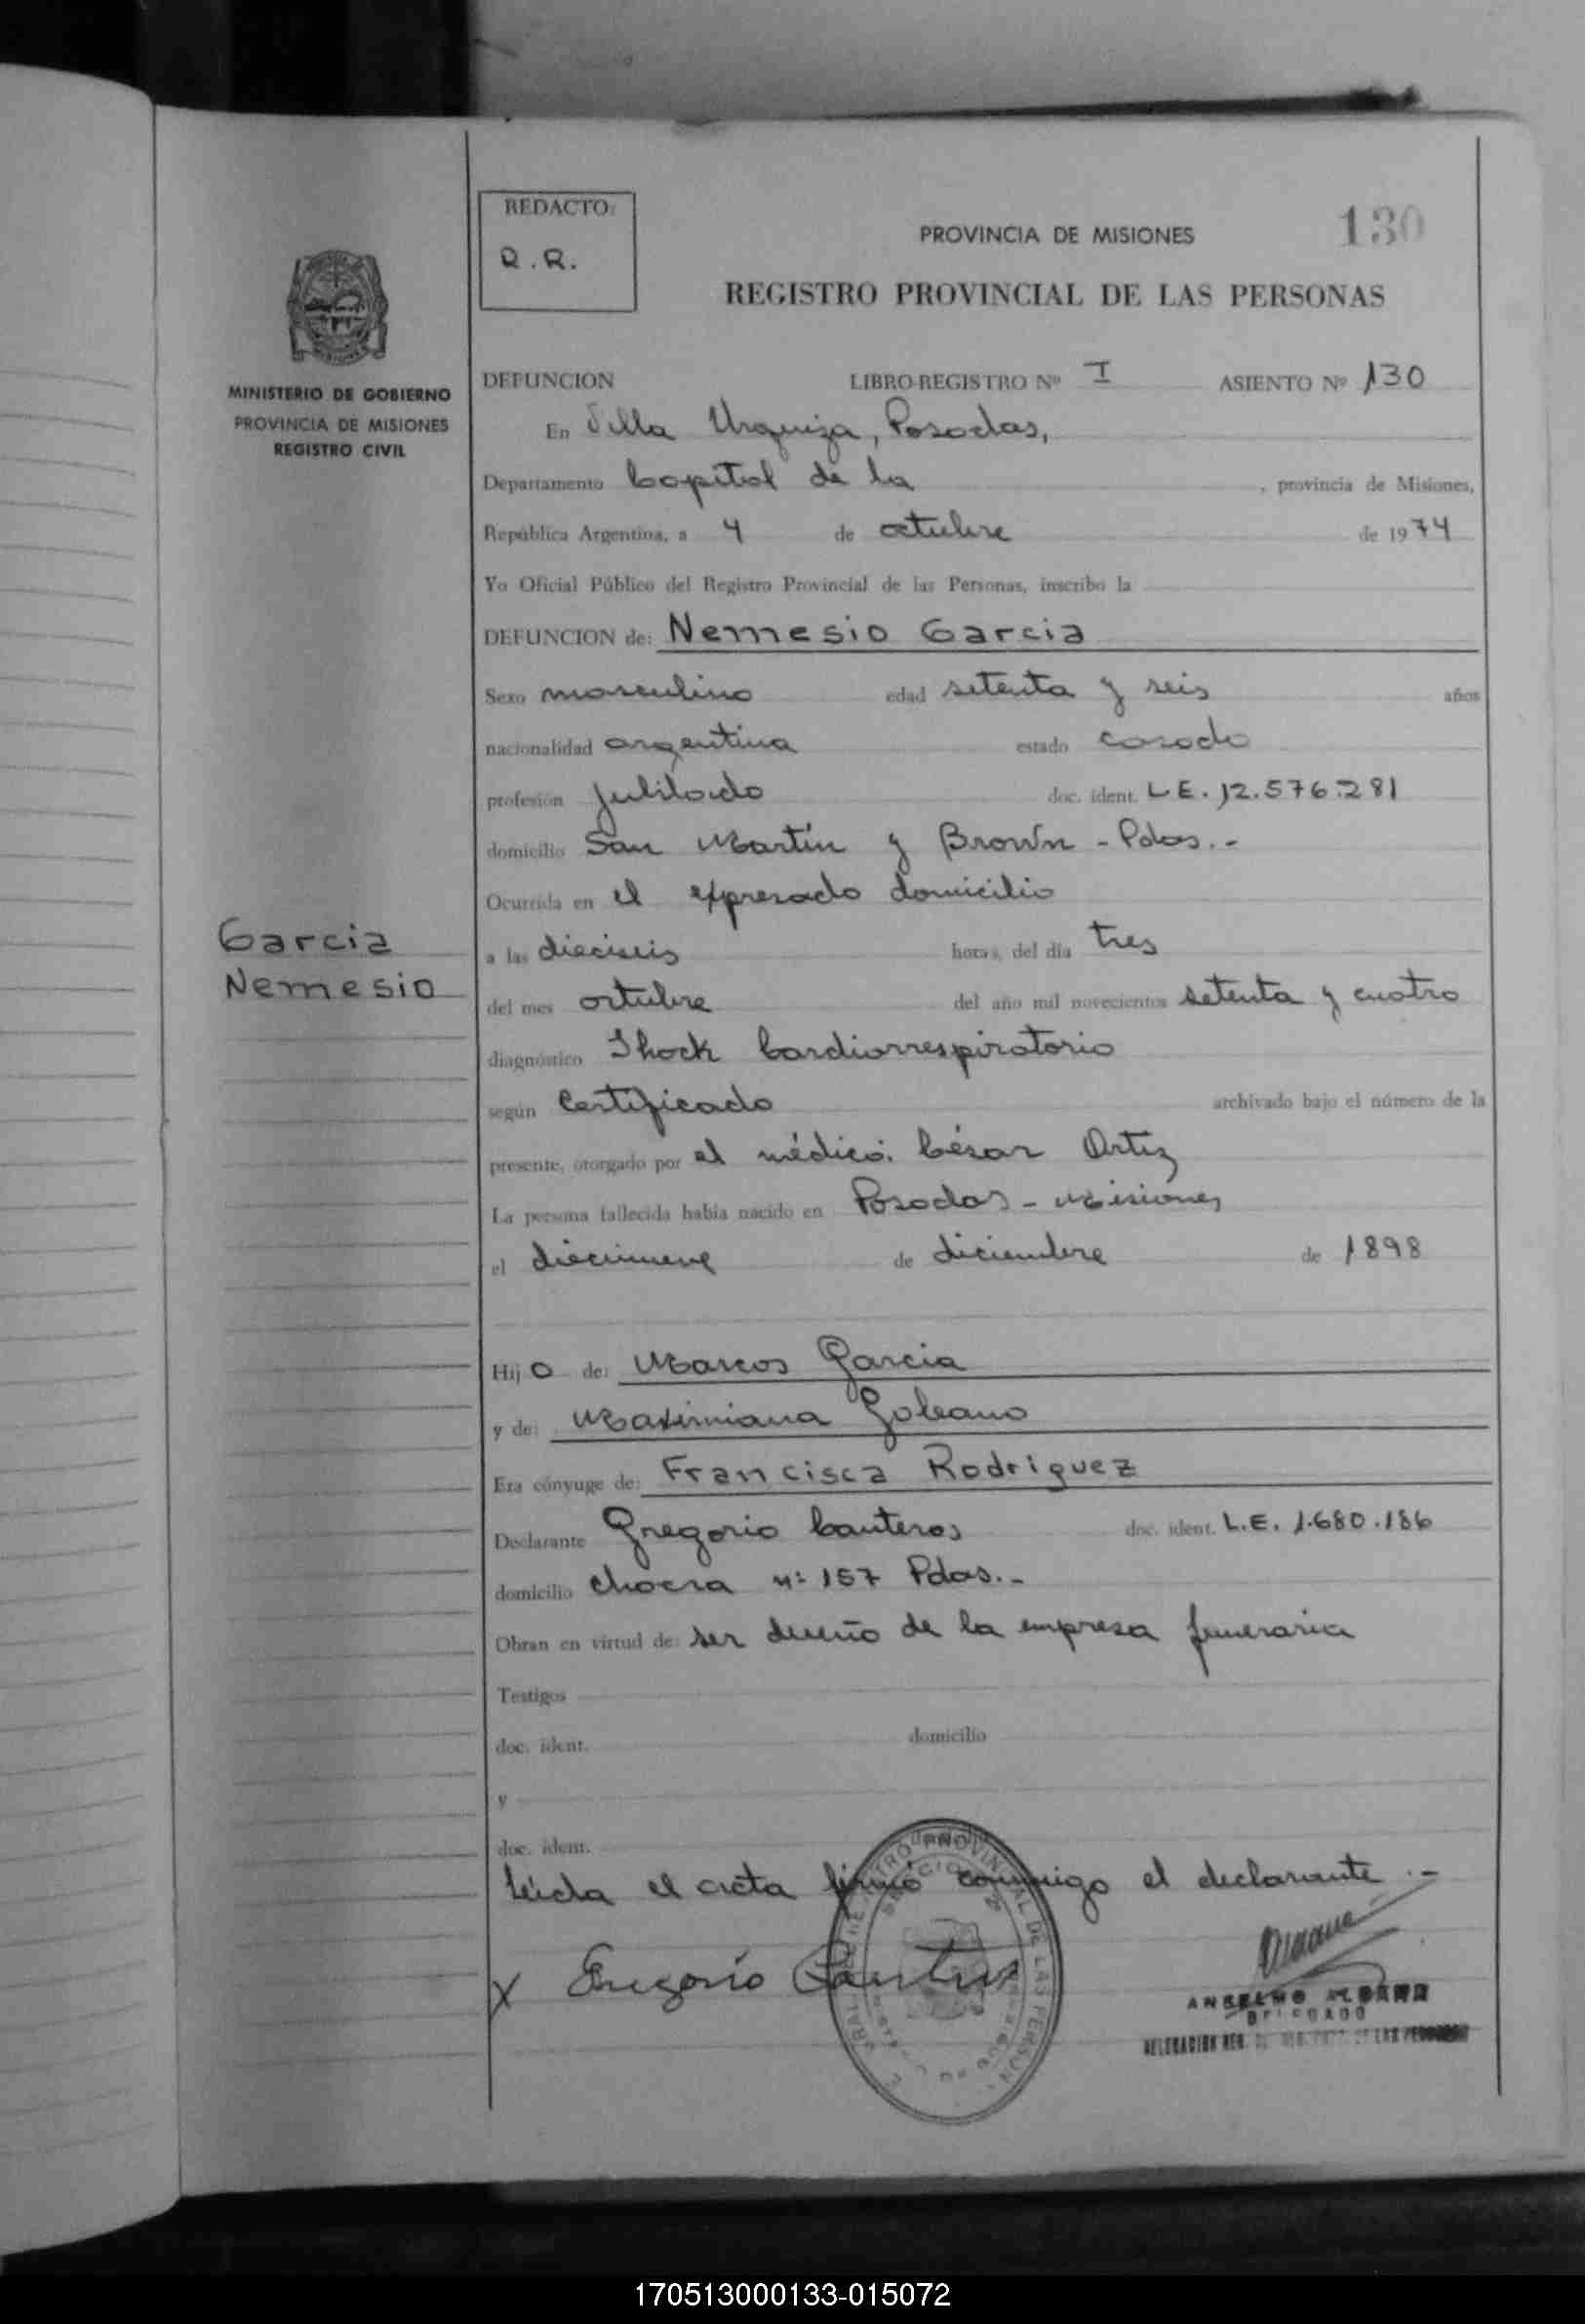 REDACTO:
R.R.
130
PROVINCIA DE MISIONES
REGISTRO PROVINCIAL DE LAS PERSONAS
MINISTERIO DE GOBIERNO
PROVINCIA DE MISIONES
REGISTRO CIVIL
DEFUNCION LIBRO-REGISTRO Nº I ASIENTO Nº 130
En Villa Urquiza, Posadas,
Departamento Capital de la , provincia de Misiones,
República Argentina, a 4 de octubre de 1974
Yo Oficial Público del Registro Provincial de las Personas, inscribo la
DEFUNCION de: Nemesio Garcia
Sexo masculino edad setenta y seis años
nacionalidad argentina estado casado
profesión Jubilado doc. ident. L.E. 12.576.281
domicilio San Martín y Brown - Pdas.-
Ocurrida en el expresado domicilio
Garcia
Nemesio
a las dieciseis horas, del día tres
del mes octubre del año mil novecientos setenta y cuatro
diagnóstico Shock Cardiorrespiratorio
según Certificado archivado bajo el número de la
presente, otorgado por el médico: César Ortiz
La persona fallecida había nacido en Posadas - Misiones
el diecinueve de diciembre de 1898
Hij o de: Marcos Garcia
y de: Maximiana
Era cónyuge de: Francisca Rodriguez
Declarante Gregorio Canteros doc. ident. L.E. 1.680.186
domicilio Chacra nº 157 Pdas.-
Obran en virtud de: ser dueño de la empresa funeraria
Testigos
doc. ident. domicilio
y
doc. ident.
Leída el acta firmó conmigo el declarante.-
x Gregorio Canteros
ANSELMO
DELEGADO
DELEGACION REG. LAS PERSONAS
PROVINCIAL DE LAS PERSONAS
170513000133-015072